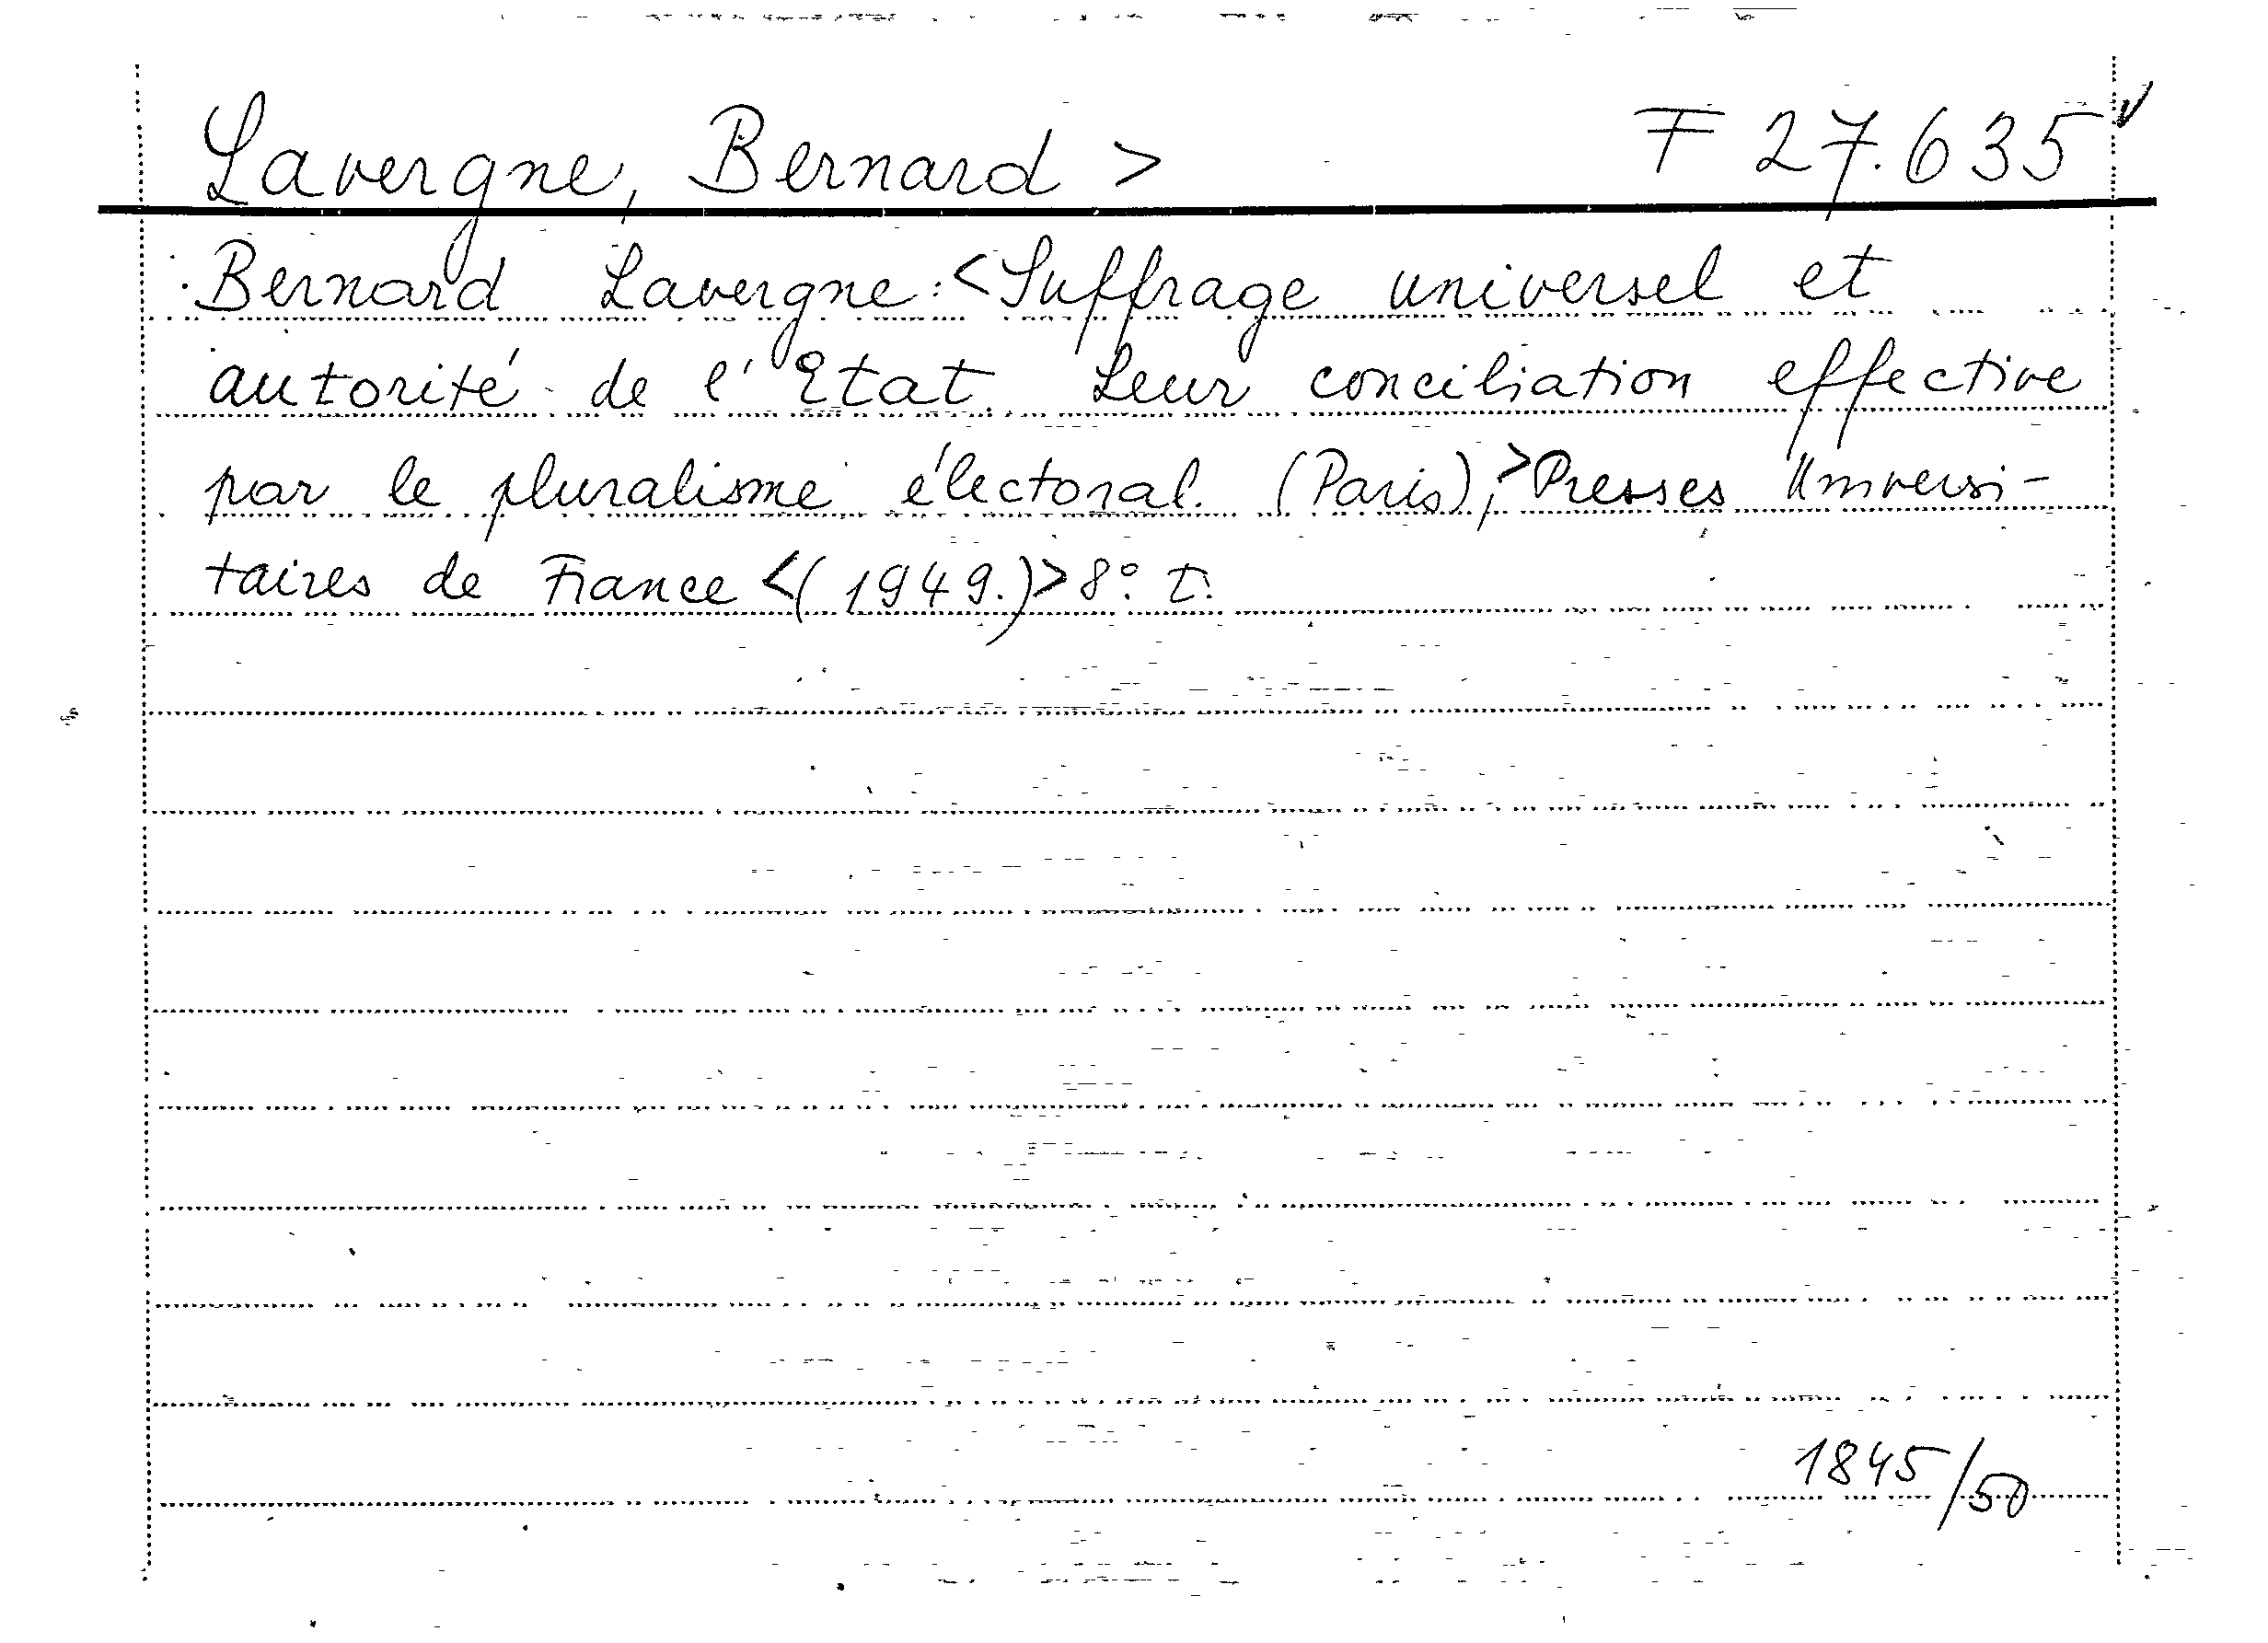 Lavergne, Bernard > F 27.635
Bernard Lavergne: <Suffrage universel et
autorité de l'Etat. Leur conciliation effective
par le pluralisme électoral. (Paris),> Presses Universi-
taires de France <(1949.)> 8°. T.
1845/50